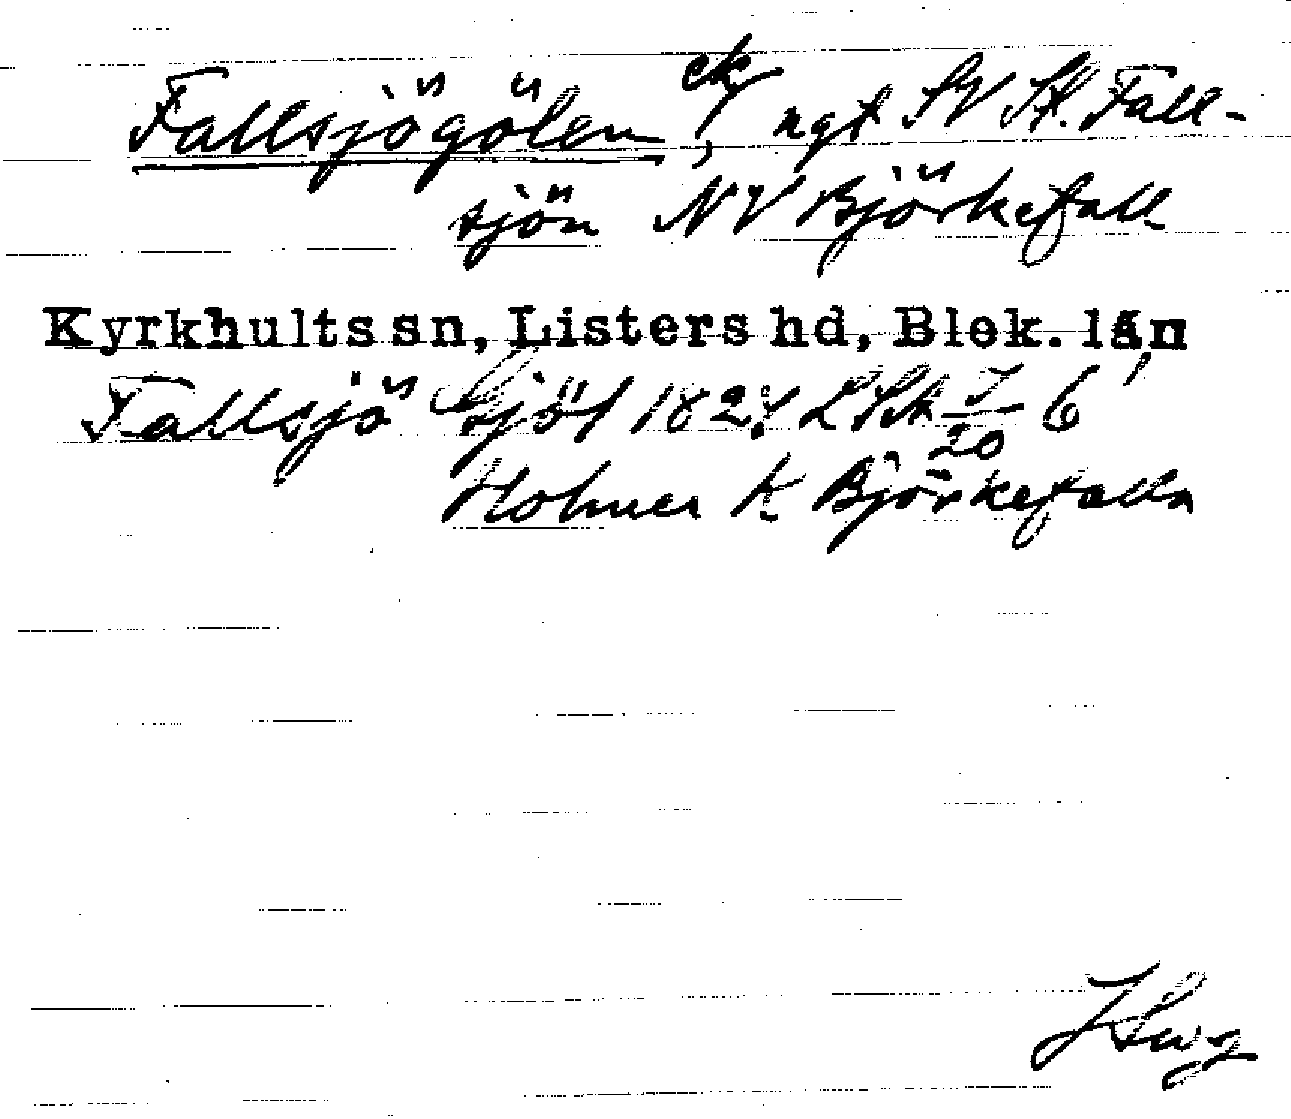 Fallsjögölen ek, ngt SV St. Fall-
sjön NV Björkefall
Kyrkhults sn, Listers hd, Blek. län
Fallsjö Gjöl 1827 LSA 7/20 6
Holmer K Björkefalla